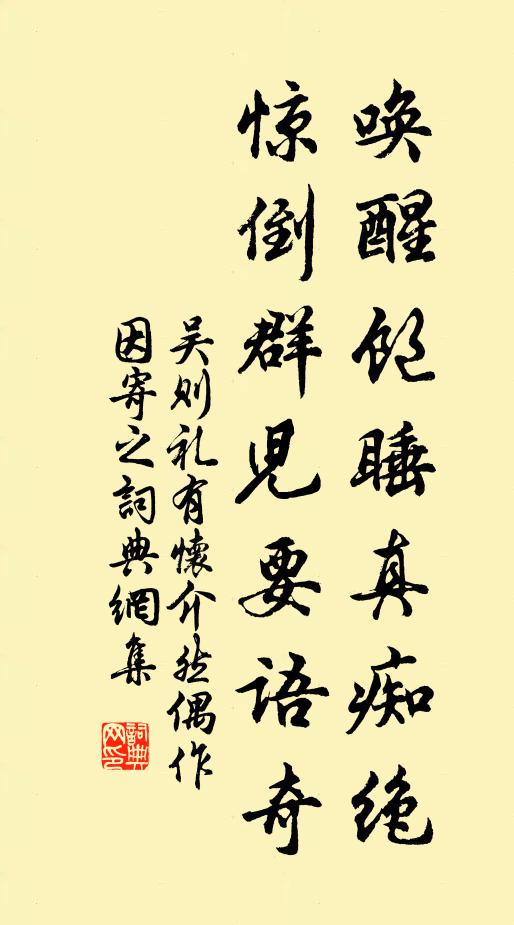 唤醒饱睡真痴绝
惊倒群児要语奇
吴则礼有懐介然偶作
因寄之詞典網集
詞典
网印